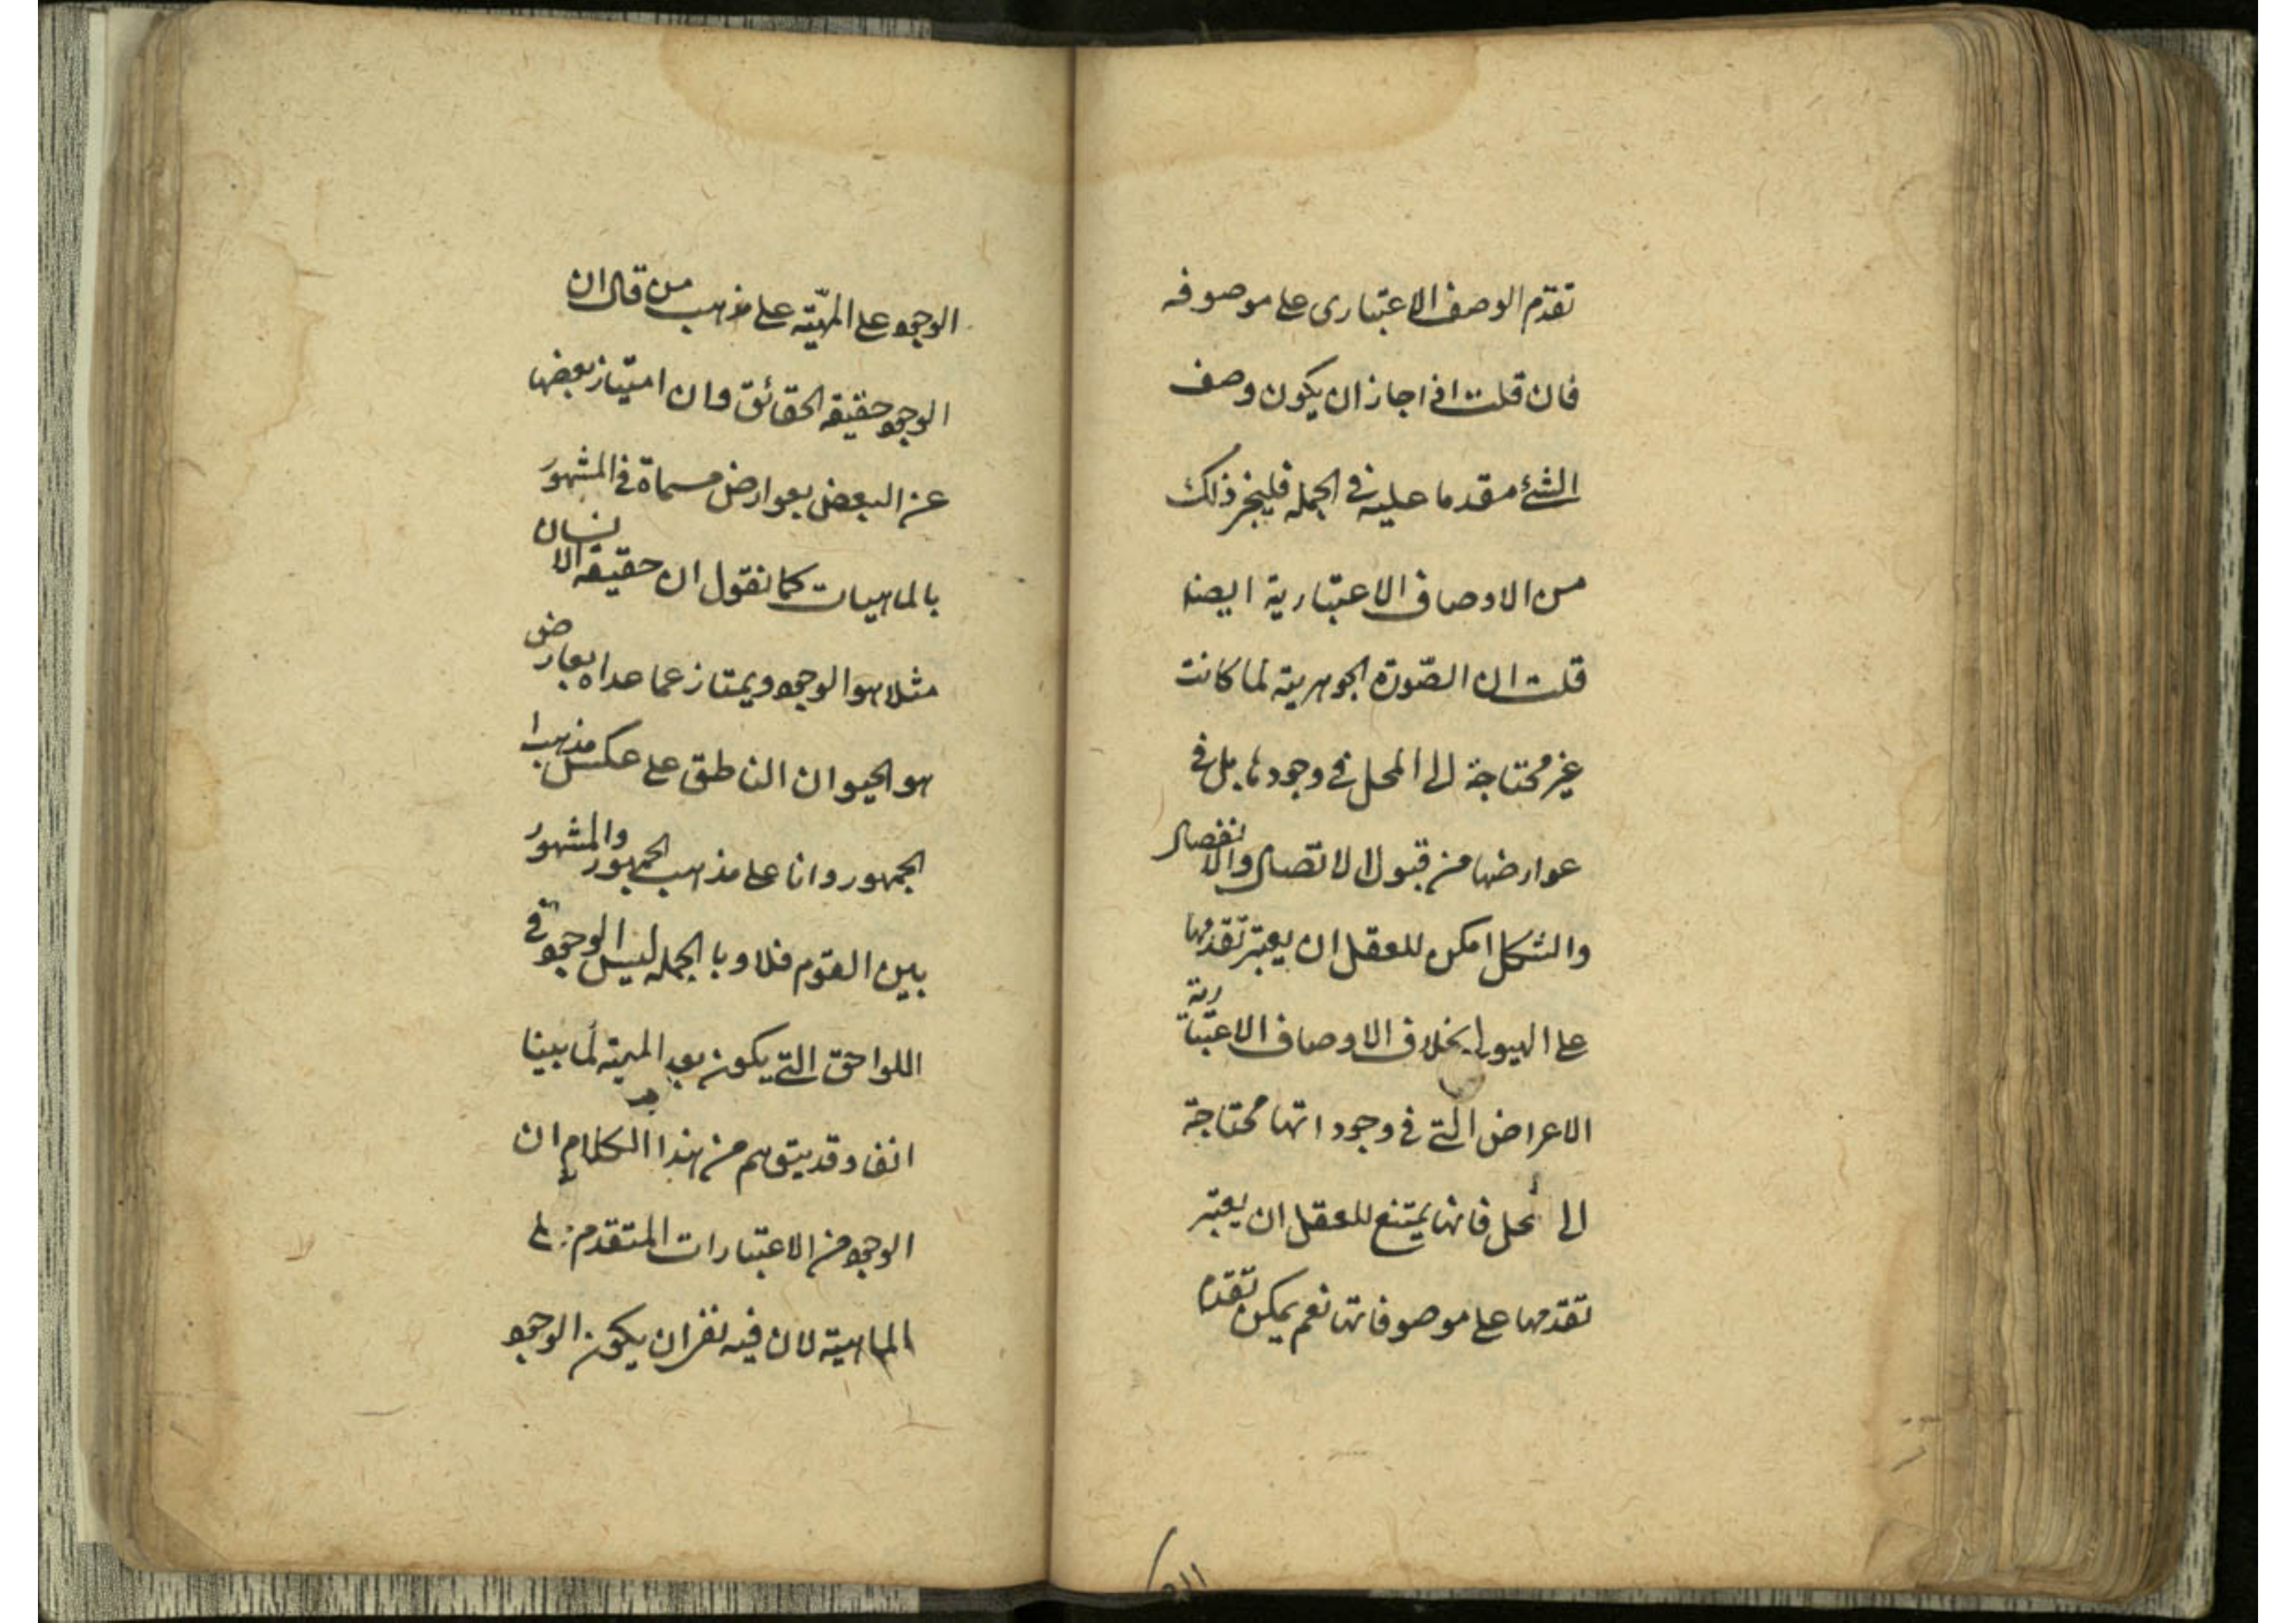 تقدّم الوصف الاعتبارى على موصوفه
فان قلت اذا جاز ان يكون وصف
الشئ مقدما عليه فى الجمله فليجز ذلك
من الاوصاف الاعتبارية ايضا
قلت ان الصّورة الجوهرية لما كانت
غير محتاجة الى المحل فى وجودها بل فى
عوارضها من قبول الاتصال والانفصال
والشكل امكن للعقل ان يعتبر تقدّمها
على الهيولى بخلاف الاوصاف الاعتبارية
الاعراض التى فى وجوداتها محتاجة
الى محل فانها يمتنع للعقل ان يعتبر
تقدّمها على موصوفاتها نعم يمكن تقدّم
الوجود على المهيّة على مذهب من قال ان
الوجود حقيقه الحقائق وان امتياز بعضها
عن البعض بعوارض مسماة فى المشهور
بالماهيات كما نقول ان حقيقه الانسان
مثلا هو الوجود ويمتاز عما عداه بعارض
هو الحيوان الناطق على عكس مذهب
الجمهور وانا على مذهب الجمهور والمشهور
بين القوم فلا وبا الجمله ليس الوجود فى
اللواحق التى يكون بعد المهية لما بينا
انفا وقد يتوهم من هذا الكلام ان
الوجود من الاعتبارات المتقدم على
الماهية لان فيه نفر ان يكون الوجود